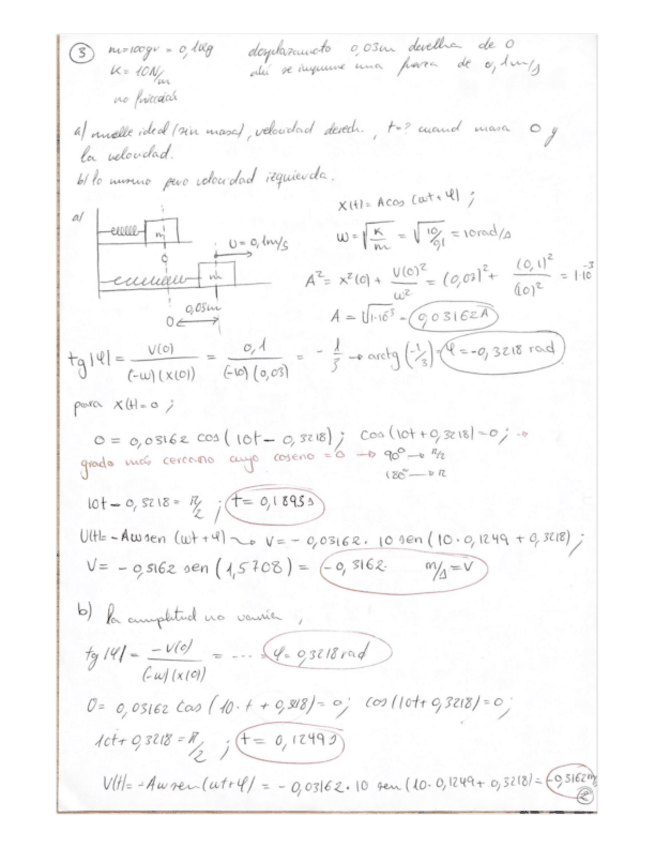 ③ m=100gr = 0,1kg desplazamiento 0,03m derecha de 0
K= 10N/m ahí se imprime una fuerza de 0,1m/s
no fricción
a) muelle ideal (sin masa), velocidad derech. , t=? cuand masa 0 y
la velocidad.
b) lo mismo pero velocidad izquierda.
a) m 0 m U=0,1m/s 0,03m 0
X(t)= A cos (ωt+φ) ;
ω=√K/m = √10/0,1 = 10rad/s
A²= x²(0) + V(0)²/ω² = (0,03)²+ (0,1)²/(10)² = 1·10⁻³
A = √1·10⁻³ = 0,03162
tg|φ| = V(0)/(-ω)(x(0)) = 0,1/(-10)(0,03) = - 1/3 → arctg(-1/3)= φ=-0,3218 rad
para X(t)=0 ;
0 = 0,03162 cos( 10t - 0,3218); cos(10t+0,3218)=0; →
grado más cercano cuyo coseno =0 → 90° → π/2
180° → π
10t - 0,3218 = π/2 ; t= 0,1893s
U(t)= -Aω sen (ωt+φ) ⤳ V= - 0,03162 · 10 sen (10 · 0,1249 + 0,3218) ;
V= - 0,3162 sen ( 1,5708) = -0,3162 m/s = V
b) la amplitud no varía ,
tg|φ| = -V(0)/(-ω)(x(0)) = .... = φ= 0,3218 rad
0= 0,03162 cos ( 10· t + 0,318)= 0; cos (10t+ 0,3218)=0;
10t+ 0,3218 = π/2 ; t= 0,1249s
V(t)= -Aω sen (ωt+φ) = - 0,03162 · 10 sen (10· 0,1249+ 0,3218)= -0,3162m/s
②